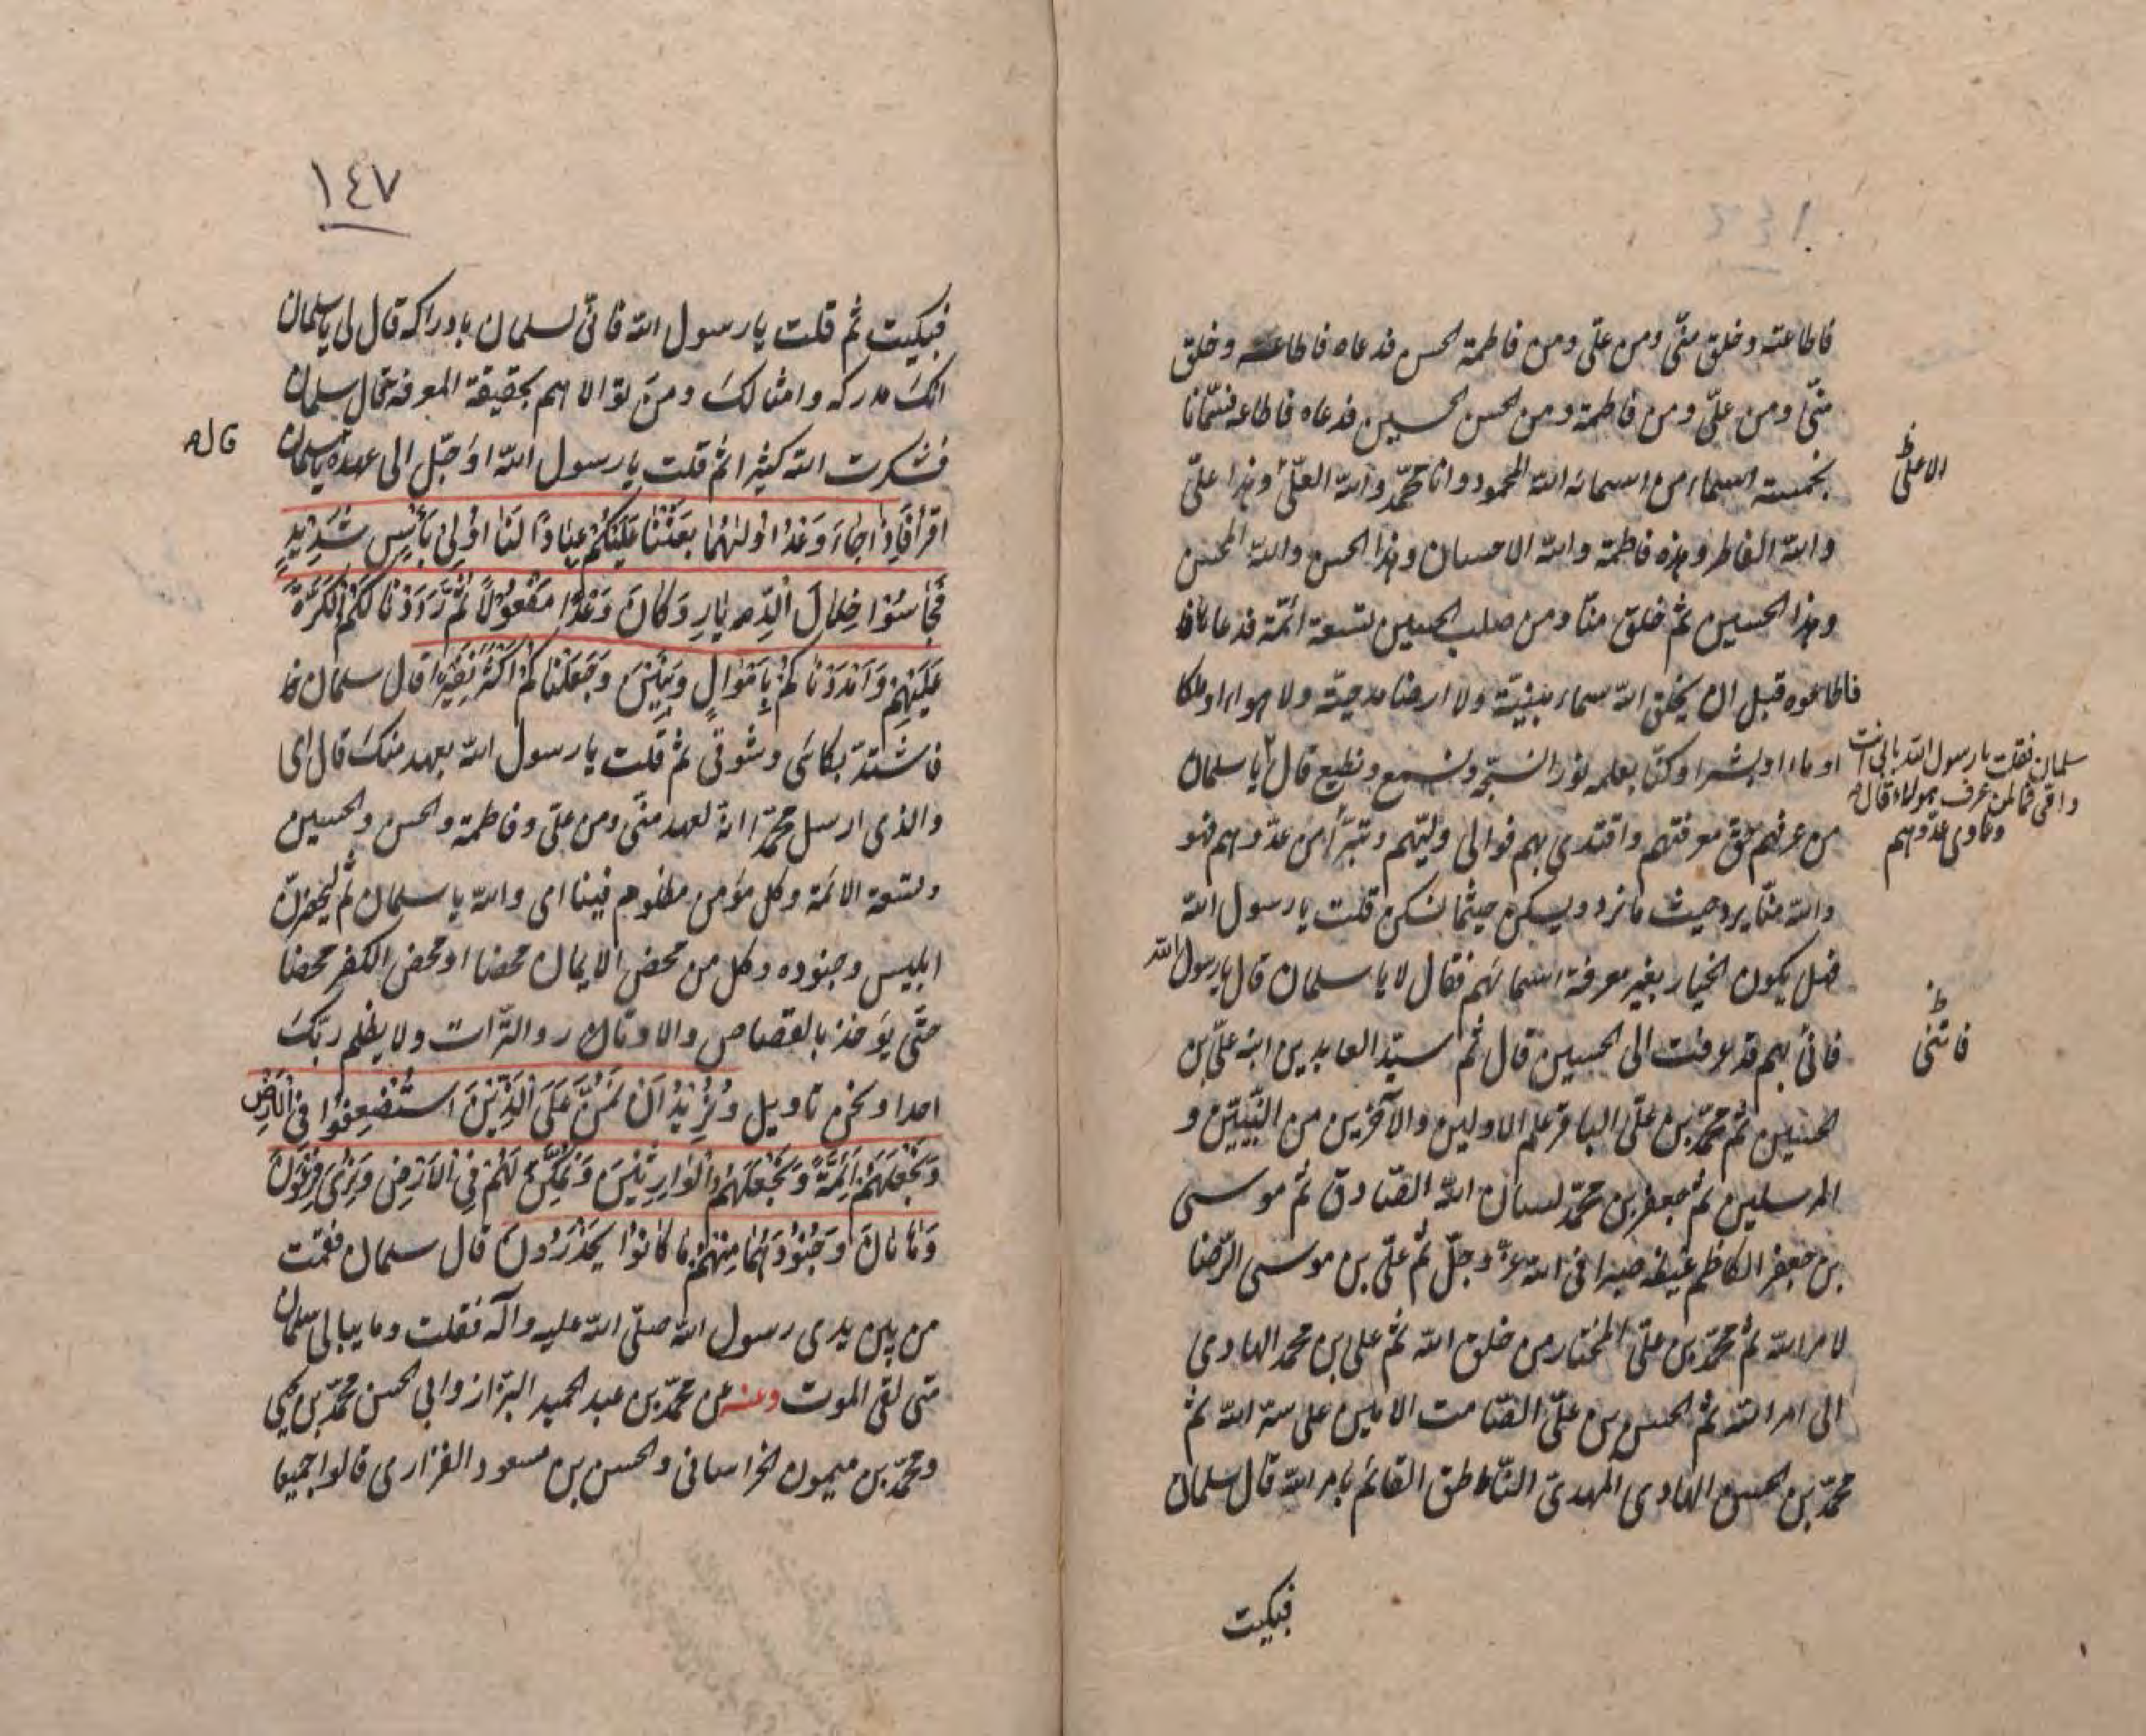 فاطاعته وخلق منّي ومن علّي ومن فاطمة الحسن فدعاه فاطاعه وخلق
منّي ومن علّي ومن فاطمة ومن الحسن الحسين فدعاه فاطاعه فسمّانا
بخمسة اسماء من اسمائه الله المحمود وانا محمّد والله العلّي وهذا علّي
الاعلى
والله الفاطر وهذه فاطمة والله الاحسان وهذا الحسن والله المحسن
وهذا الحسين ثم خلق منّا ومن صلب الحسين تسعة ائمّة فدعاهم
فاطاعوه قبل ان يخلق الله سماء مبنيّة ولا ارضا مدحيّة ولا هواء او ملكا
او ماء او بشرا وكنّا بعلمه نورا نسبّحه ونسمع ونطيع قال يا سلمان
سلمان فقلت يا رسول الله بابي انت
وامّي فما لمن عرف هؤلاء قال
من عرفهم حقّ معرفتهم واقتدى بهم فوالى وليّهم وتبرّأ من عدوهم فهو
وعادى عدوهم
والله منّا يرد حيث ما نرد ويسكن حيثما نسكن قلت يا رسول الله
فهل يكون الخيار بغير معرفة اسمائهم فقال لا يا سلمان قال يا رسول الله
فانّي بهم قد عرفت الى الحسين قال ثم سيّد العابدين ابنه علّي بن
فانّى
الحسين ثم محمّد بن علّي الباقر علم الاولين والآخرين من النبيّين و
المرسلين ثم جعفر بن محمّد لسان الله الصّادق ثم موسى
بن جعفر الكاظم غيظه صبرا في الله عزّ وجلّ ثم علّي بن موسى الرّضا
لامر الله ثم محمّد بن علّي المختار من خلق الله ثم علي بن محمد الهادي
الى امر الله ثم الحسن بن علّي الصّامت الامين على سرّ الله ثم
محمّد بن الحسن الهادي المهديّ النّاطق القائم بامر الله قال سلمان
فبكيت
١٤٧
فبكيت ثم قلت يا رسول الله فانّي لسلمان بادراكه قال لي يا سلمان
انك مدركه وامثالك ومن توالاهم بحقيقة المعرفة قال سلمان
فشكرت الله كثيرا ثم قلت يا رسول الله اؤجّل الى عهده يا سلمان
قال
اقرأ فَإِذَا جَاءَ وَعْدُ أُولٰهُمَا بَعَثْنَا عَلَيْكُمْ عِبَادًا لَنَا أُولِي بَأْسٍ شَدِيدٍ
فَجَاسُوا خِلَالَ الدِّيَارِ وَكَانَ وَعْدًا مَفْعُولًا ثُمَّ رَدَدْنَا لَكُمُ الْكَرَّةَ
عَلَيْهِمْ وَأَمْدَدْنَاكُمْ بِأَمْوَالٍ وَبَنِينَ وَجَعَلْنَاكُمْ أَكْثَرَ نَفِيرًا قال سلمان
فاشتدّ بكائي وشوقي ثم قلت يا رسول الله بعهد منك قال اى
والذي ارسل محمّدا انه لعهد منّي ومن علّي وفاطمة والحسن والحسين
وتسعة الائمة وكل مؤمن مظلوم فينا اى والله يا سلمان ثم ليحضرنّ
ابليس وجنوده وكل من محض الايمان محضا او محض الكفر محضا
حتّى يؤخذ بالقصاص والاوتار والتّرات ولا يظلم ربّك
احدا ونحن تاويل وَنُرِيدُ أَنْ نَمُنَّ عَلَى الَّذِينَ اسْتُضْعِفُوا فِي الْأَرْضِ
وَنَجْعَلَهُمْ أَئِمَّةً وَنَجْعَلَهُمُ الْوَارِثِينَ وَنُمَكِّنَ لَهُمْ فِي الْأَرْضِ وَنُرِيَ فِرْعَوْنَ
وَهَامَانَ وَجُنُودَهُمَا مِنْهُمْ مَا كَانُوا يَحْذَرُونَ قال سلمان فقمت
من بين يدى رسول الله صلّى الله عليه وآله فقلت وما يبالى سلمان
متى لقى الموت وعنه عن محمّد بن عبد الحميد البزّاز وابي الحسن محمّد بن يحيى
ومحمّد بن ميمون الخراساني والحسن بن مسعود الفزاري قالوا جميعا